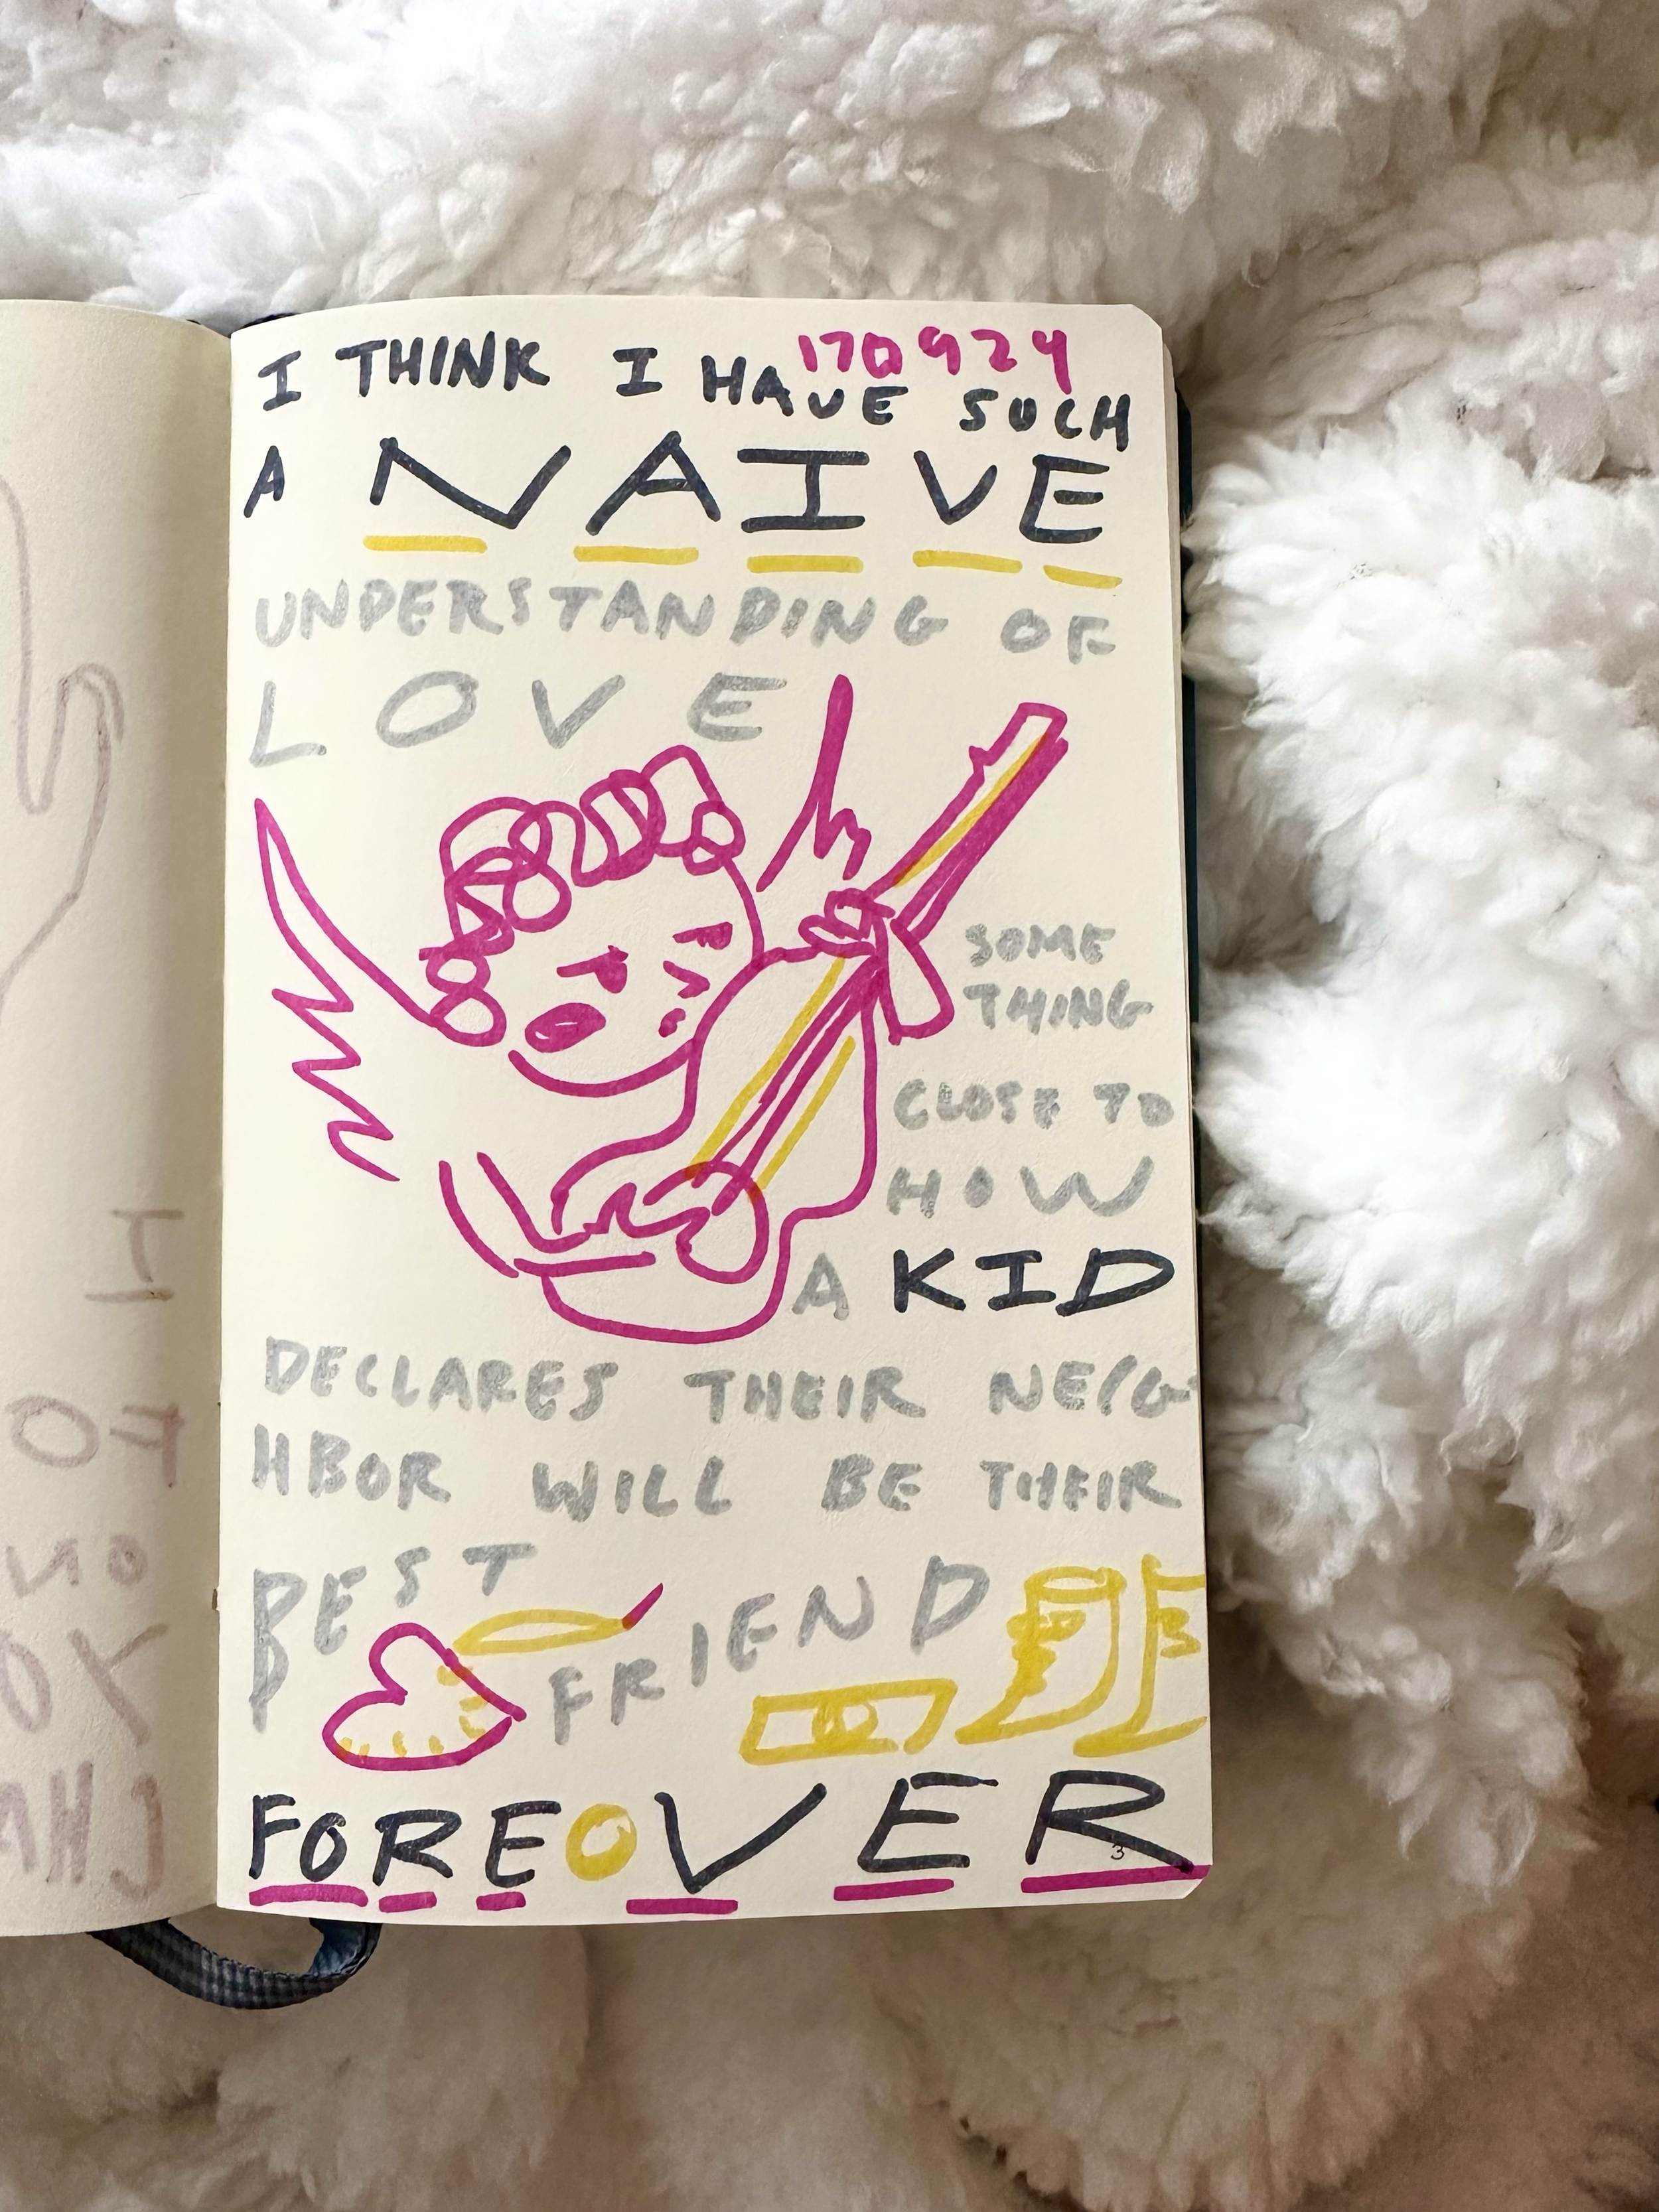 170924
I THINK I HAVE SUCH
A NAIVE
UNDERSTANDING OF
LOVE
SOME
THING
CLOSE TO
HOW
A KID
DECLARES THEIR NEIG-
HBOR WILL BE THEIR
BEST
FRIEND
FOREOVER
3